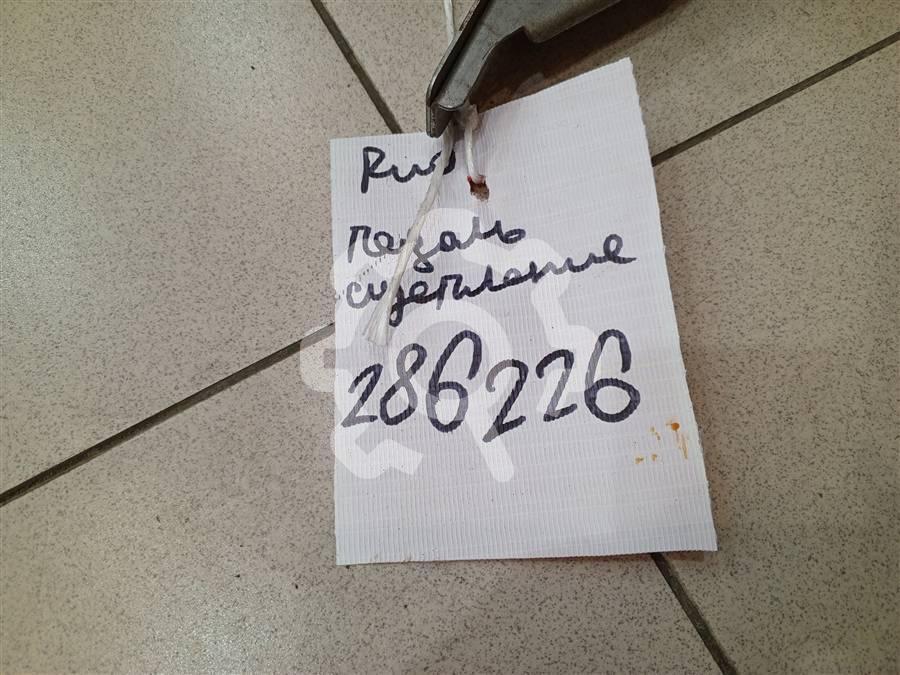 Rio
педаль
сцепление
286226